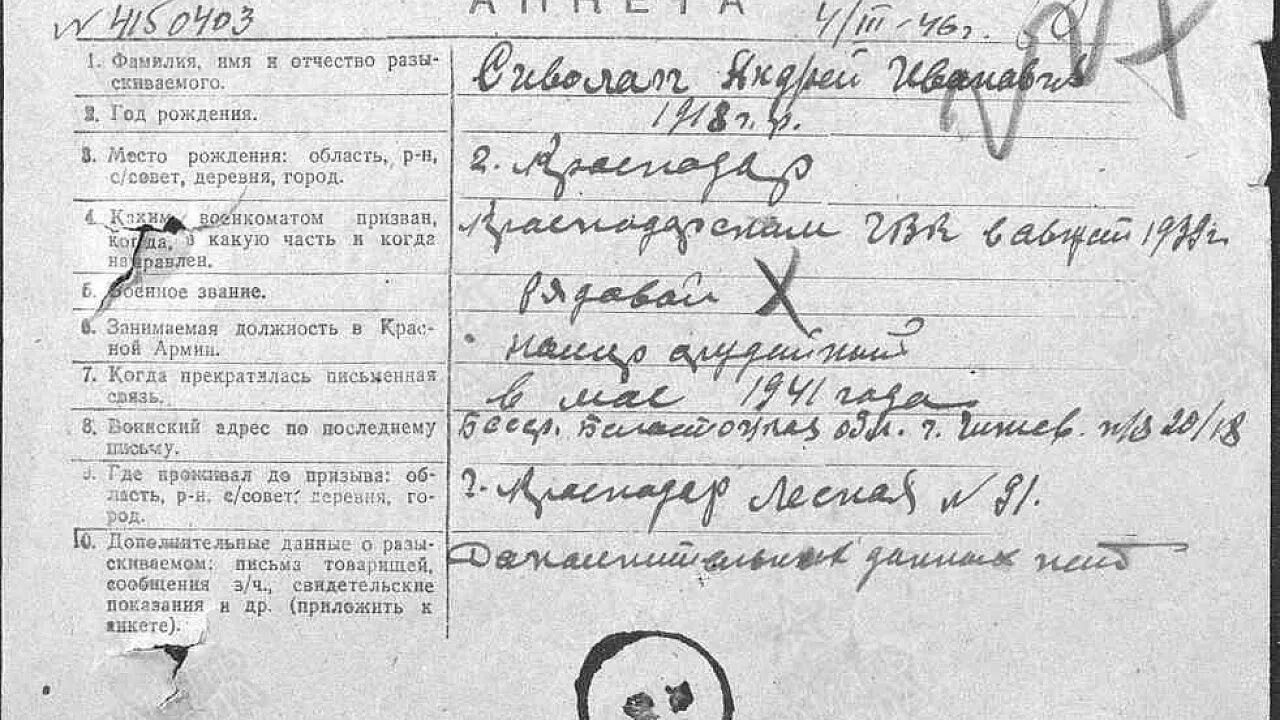 N 4150403
АНКЕТА
4/III-46г.
1. Фамилия, имя и отчество разы-
скиваемого.
Сиволап Андрей Иванович
2. Год рождения.
1918 г.р.
3. Место рождения: область, р-н,
с/совет, деревня, город.
г. Краснодар
4. Каким военкоматом призван,
когда, в какую часть и когда
направлен.
Краснодарским ГВК в август 1939г.
5. Военное звание.
рядовой
6. Занимаемая должность в Крас-
ной Армии.
номер орудейный
7. Когда прекратилась письменная
связь.
в мае 1941 года
8. Воинский адрес по последнему
письму.
Бсср. обл. г. п/я 20/18
9. Где проживал до призыва: об-
ласть, р-н, с/совет, деревня, го-
род.
г. Краснодар Лесная N 91.
10. Дополнительные данные о разы-
скиваемом: письма товарищей,
сообщения з/ч., свидетельские
показания и др. (приложить к
анкете).
Дополнительных данных нет